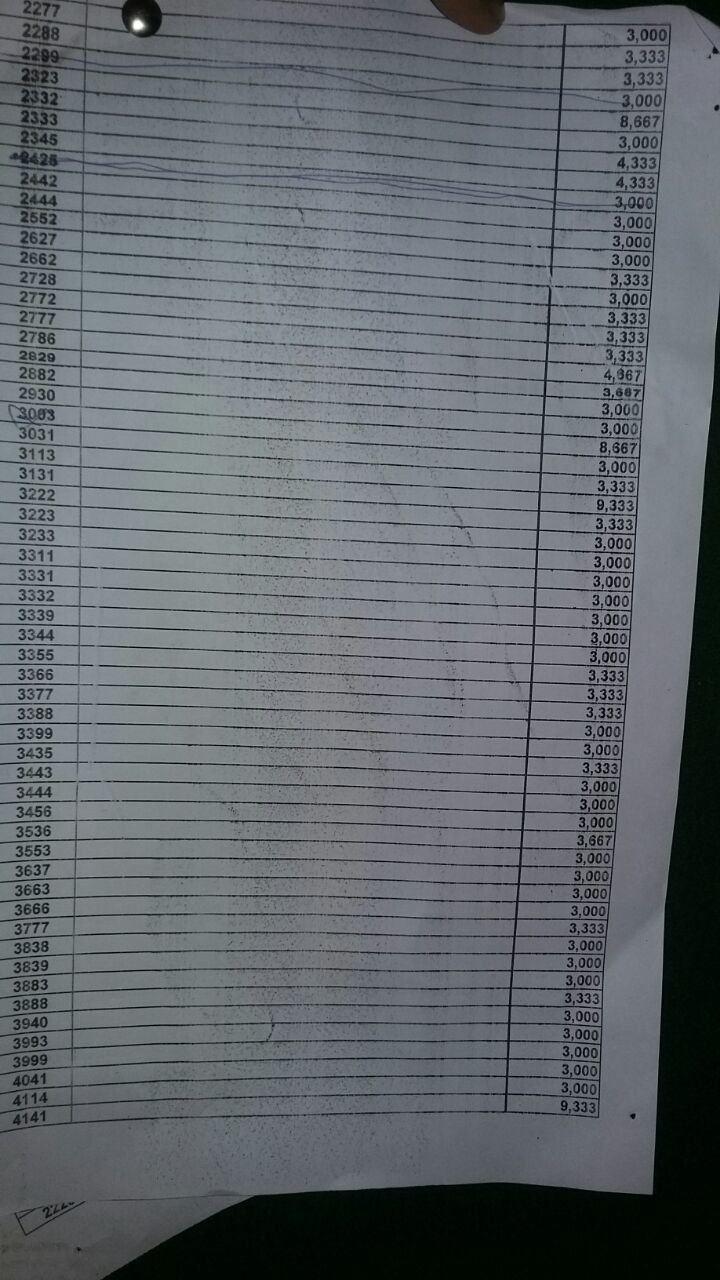 3,000
2277 3,333
2288 3,333
2299 3,000
2323 8,667
2332 3,000
2333 4,333
2345 4,333
2425 3,000
2442 3,000
2444 3,000
2552 3,000
2627 3,333
2662 3,000
2728 3,333
2772 3,333
2777 3,333
2786 4,667
2829 3,667
2882 3,000
2930 3,000
3003 8,667
3031 3,000
3113 3,333
3131 9,333
3222 3,333
3223 3,000
3233 3,000
3311 3,000
3331 3,000
3332 3,000
3339 3,000
3344 3,000
3355 3,333
3366 3,333
3377 3,333
3388 3,000
3399 3,000
3435 3,333
3443 3,000
3444 3,000
3456 3,000
3536 3,667
3553 3,000
3637 3,000
3663 3,000
3666 3,000
3777 3,333
3838 3,000
3839 3,000
3883 3,000
3888 3,333
3940 3,000
3993 3,000
3999 3,000
4041 3,000
4114 3,000
4141 9,333